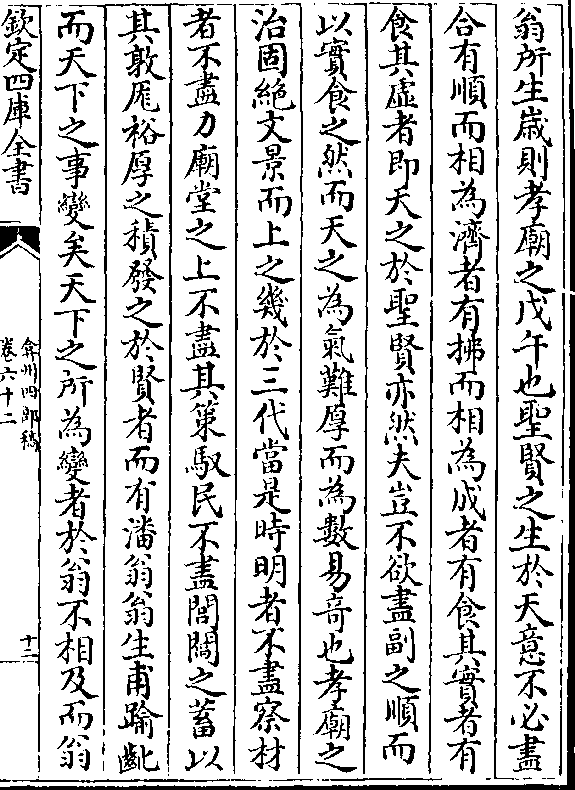 翁所生歳則孝廟之戊午也聖賢之生於天意不必盡
合有順而相為濟者有拂而相為成者有食其實者有
食其虛者即天之於聖賢亦然夫豈不欲盡副之順而
以實食之然而天之為氣難厚而為數易奇也孝廟之
治固絶文景而上之幾於三代當是時明者不盡察材
者不盡力廟堂之上不盡其策馭民不盡閭閻之蓄以
其敦厖裕厚之積發之於賢者而有潘翁翁生甫踰齔
而天下之事變矣天下之所為變者於翁不相及而翁
欽定四庫全書
弇州四部稿
卷六十二
十二